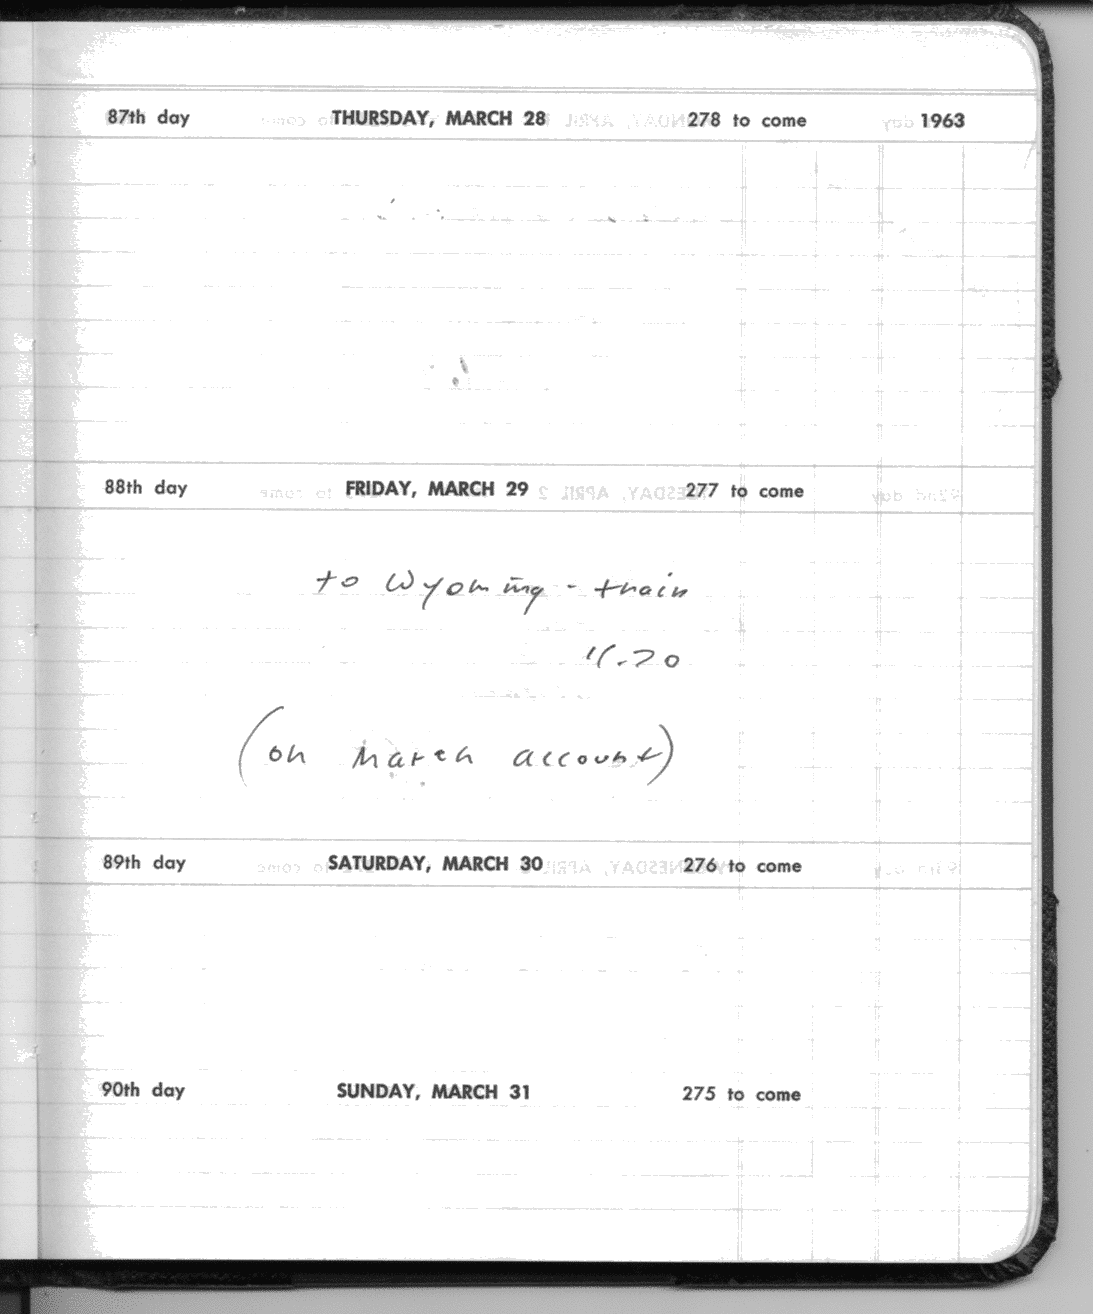 87th day THURSDAY, MARCH 28 278 to come 1963
88th day FRIDAY, MARCH 29 277 to come
to Wyoming - train
11.20
(on March account)
89th day SATURDAY, MARCH 30 276 to come
90th day SUNDAY, MARCH 31 275 to come